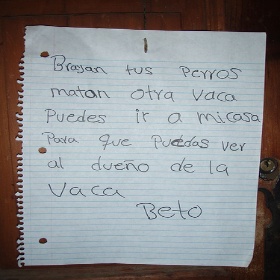 Brajan tus perros
matan otra vaca
Puedes ir a mi casa
Para que puedas ver
al dueño de la
vaca
Beto